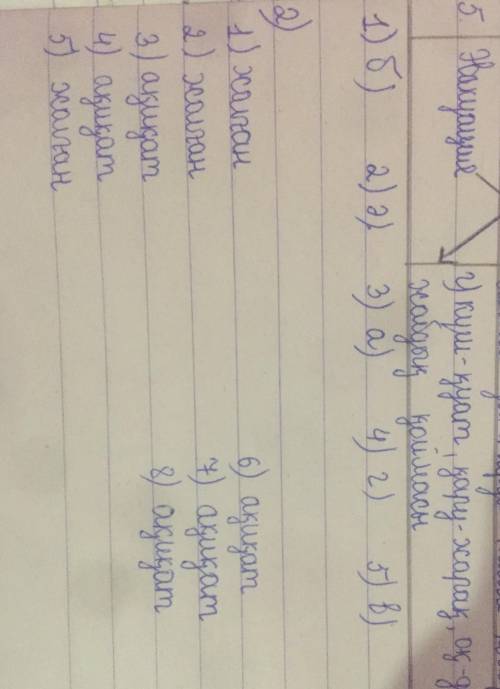 5
г) күш-қуат, қару-жарақ, оқ-д
1) б) 2) ә) 3) а) 4) г) 5) в)
2)
1) жалған 6) ақиқат
2) жалған 7) ақиқат
3) ақиқат 8) ақиқат
4) ақиқат
5) жалған